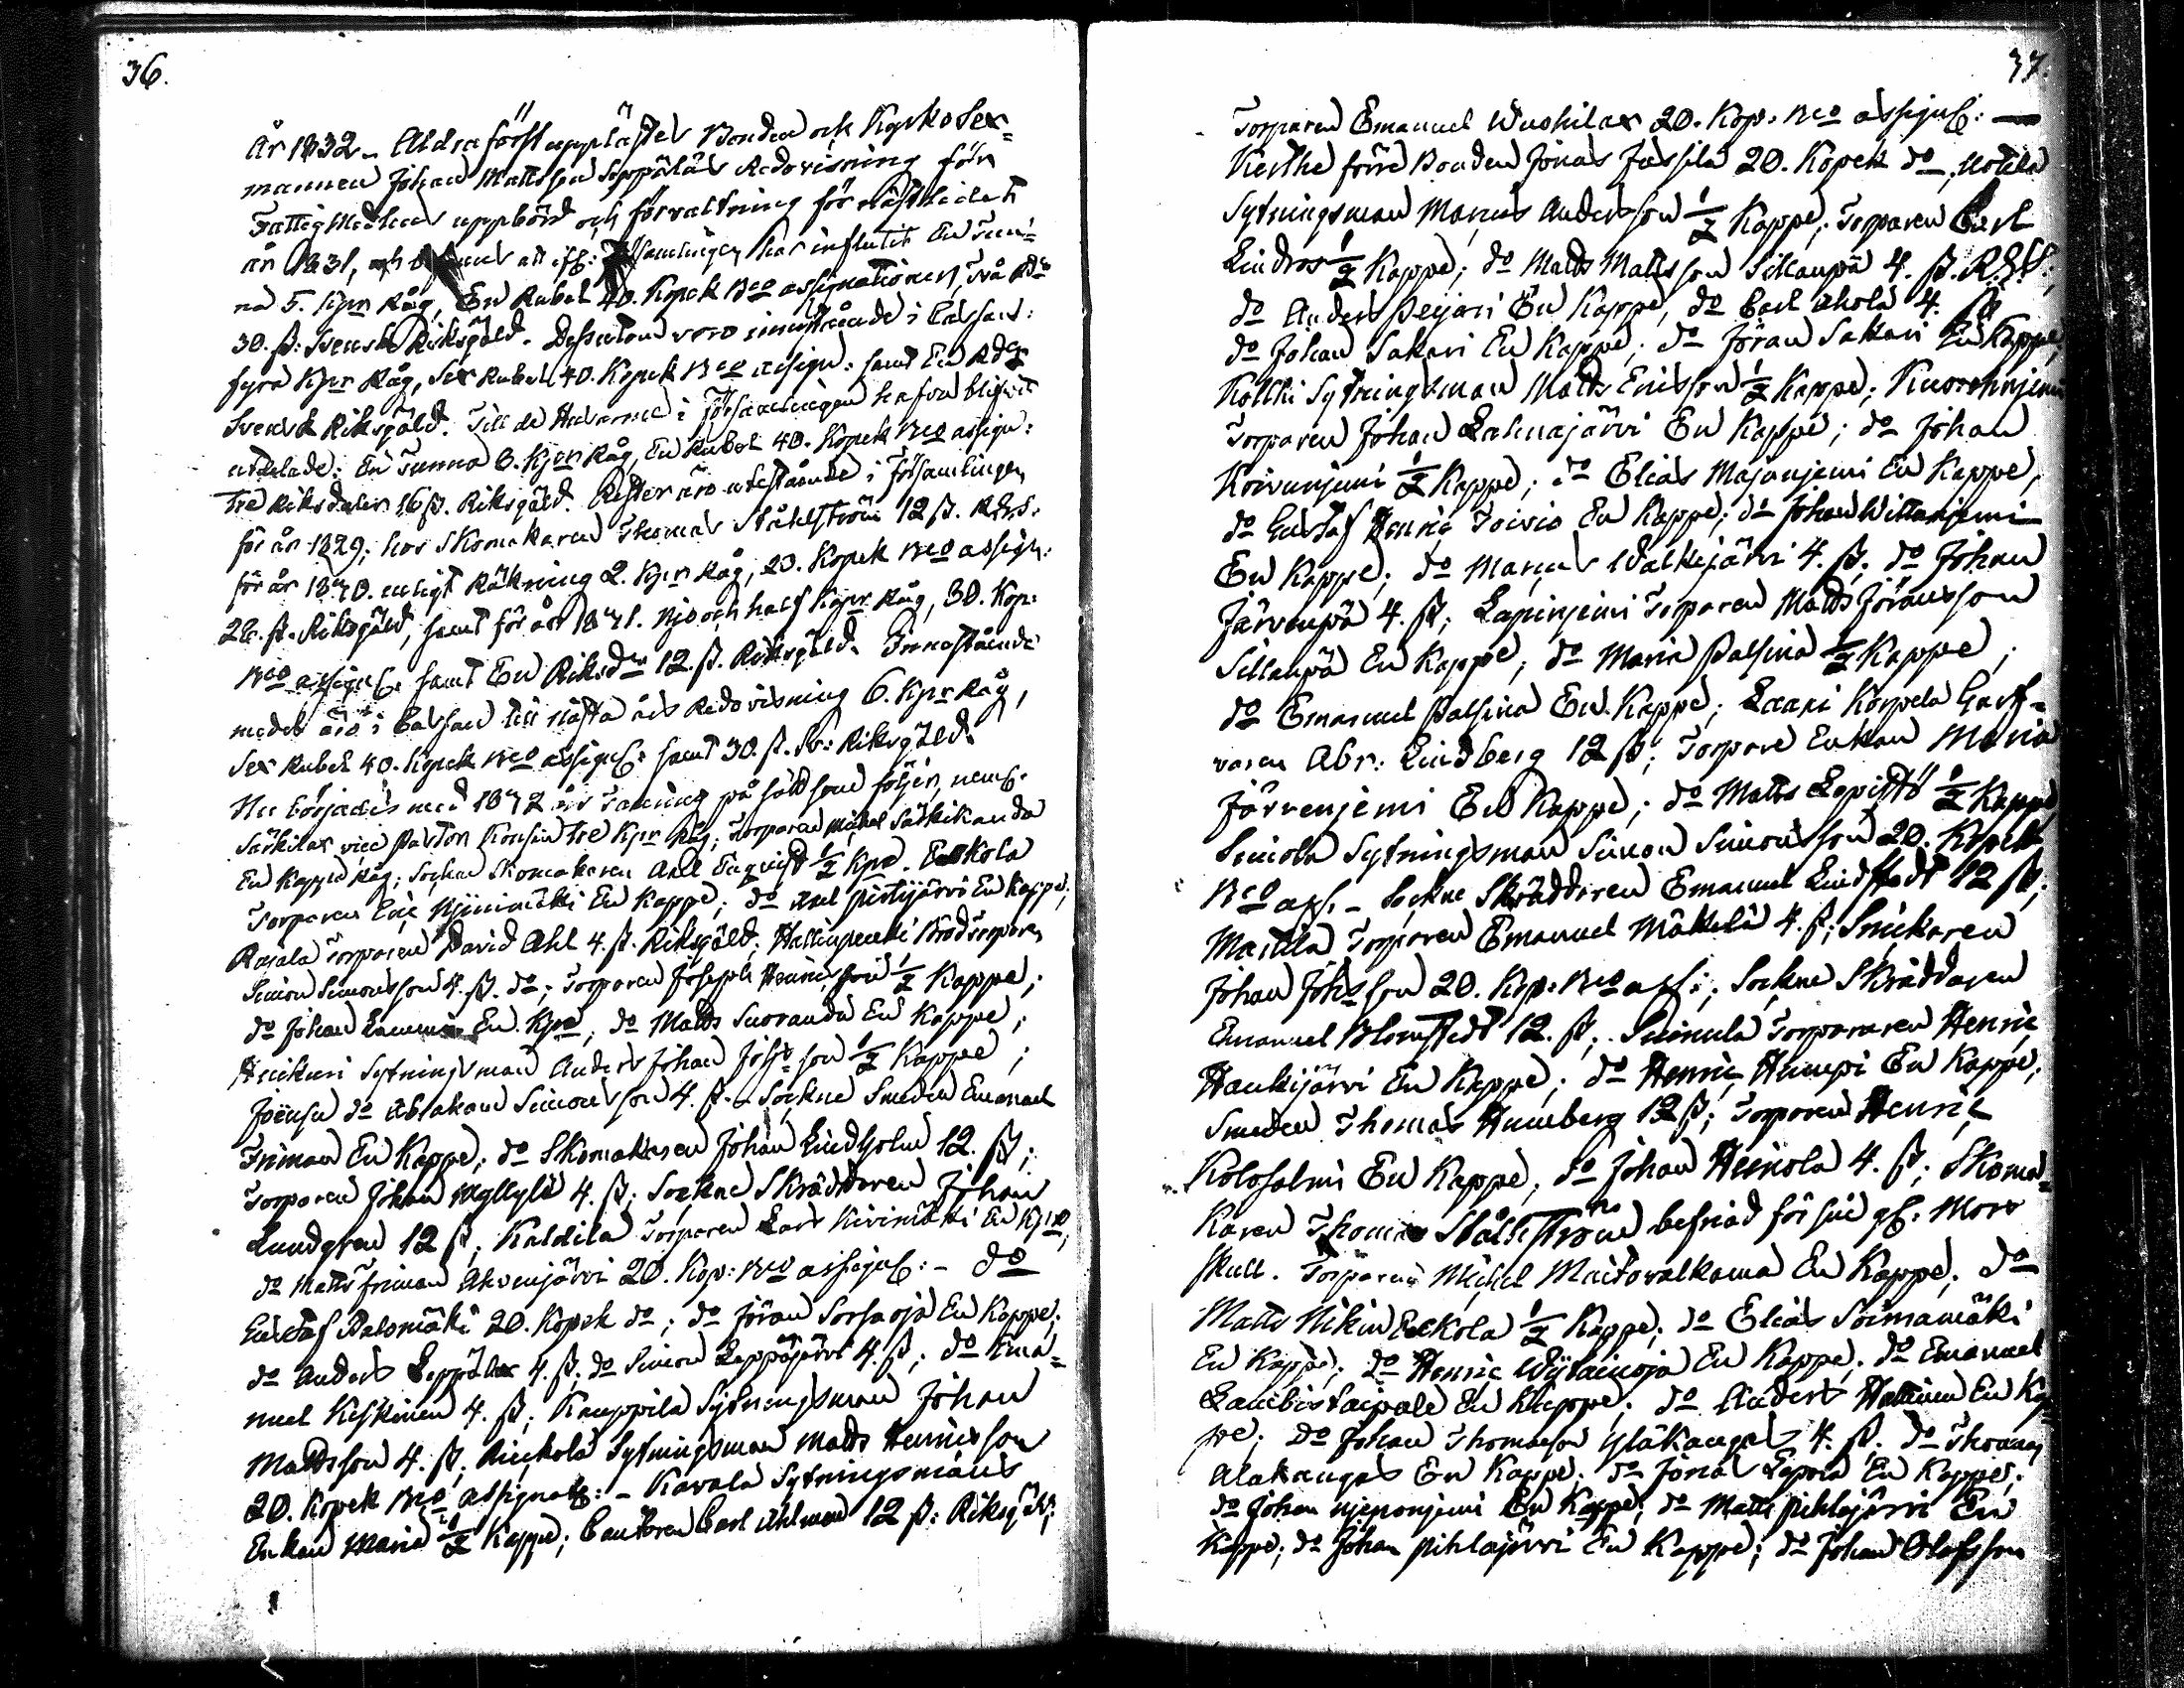 36.
År 1832 - Aldra först upplästes Bonden och Kyrkosex=
mannen Johan Mattsson Seppäläs Redovisning för
Fattig Medlens uppbörd och förvaltning för nästledet
år 1831, och att Församlingen har influtit En Tun=
na 5. Kpr Råg, En Rubel 40. Kopek Bco assignationer, Två Rdr
30. ß: Svensk Riksgäld. Dessutom voro innestående i Cassan:
fyra Kpr Råg, Sex Rubel 40. Kopek Bco assign: samt En Rdr
Svensk Riksgäld. Till de i Församlingen hafva blifvit
utdelade: En Tunna 6. Kpr Råg, En Rubel 40. Kopek Bco assign:
Tre Riksdaler 16 ß. Riksgäld. Rester äro utestående i Församlingen
för år 1829, hos Skomakaren Thomas Ståhlström 12 ß. Rgds.
för år 1830. enligt Räkning 2. Kpr Råg, 20. Kopek Bco assign:
28. ß. Riksgäld, samt för år 1831. Nio och half Kpr Råg, 30. Kop:
Bco assign: samt En Riksdr 12. ß. Riksgäld. Innestående
medel äro i Cassan till nästa års Redovisning 6. Kpr Råg,
Sex Rubel 40. Kopek Bco assign: samt 30. ß. Sv: Riksgäld.
Nu börjades med 1832 års Taxering på sätt som följer, neml:
Särkilax vice Pastor Konsin Tre Kpr Råg; Torparen Michel Särkikanda
En Kappe Råg; Sockne Skomakaren Axel Engqvist ½ Kpe. Eskola
Torparen Eric Njinimäki En Kappe; do Axel Pertijärvi En Kappe;
Rasala Torparen David Ahl 4. ß. Riksgäld; Hallinpenki Brodtorparen
Simon Simonsson 4. ß. do; Torparen Joseph Henricsson ½ Kappe;
do Johan En Kpe; do Matts Suoranda En Kappe;
Heickuri Sytningsman Anders Johan Johsson ½ Kappe;
Joensu do Abraham Simonsson 4. ß. - Sockne Smeden Emanuel
Friman En Kappe; do Skomakaren Johan Lindholm 12. ß;
Torparen Johan Myllylä 4. ß; Sockne Skräddaren Johan
Lundgren 12 ß; Kaldila Torparen Lars Kivimäki En Kpe,
do Matts Friman Ahvenjärvi 20. Kop: Bco assign: - do
Gustaf Palomäki 20. Kopek do; do Jöran Sorsaoja En Kappe;
do Anders Leppälax 4. ß; do Simon Leppäjärvi 4. ß; do Ema=
nuel Keskinen 4. ß; Kauppila Sytningsman Johan
Mattsson 4. ß; Sytningsman Matts Henricsson
20. Kopek Bco assignat: - Kavala Sytningsmans
Enkan Maria ½ Kappe; Cantoren Carl Ahlman 12 ß: Riksgäld;
37.
Torparen Emanuel Wuohilax 20. Kop: Bco assign: —
Kerthe förre Bonden Jonas Jussila 20. Kopek do, Uotila
Sytningsman Marcus Andersson ½ Kappe; Torparen Carl
Lindros ½ Kappe; do Matts Mattsson Sillanpä 4. ß. R.gd;
do Anders Peijari En Kappe, do Carl Ahola 4. ß
do Johan Sakari En Kappe; do Jöran Sakari En Kappe,
Kolkki Sytningsman Matts Ericsson ½ Kappe;
Torparen Johan Lahnajärvi En Kappe; do Johan
Koivunjemi ½ Kappe; do Elias Majanjemi En Kappe,
do Gustaf Henric Toivio En Kappe; do Johan Wittanjemi
En Kappe; do Marcus Walkejärvi 4. ß; do Johan
Järvenpä 4. ß; Lapinjemi Torparen Matts Jöransson
Sillanpä En Kappe; do Maria Palsina ½ Kappe;
do Emanuel Palsina En Kappe; Laari Korpela Garf=
varen Abr: Lindberg 12 ß; Torpare Enkan Maria
Järvenjemi En Kappe; do Matts Lepistö ½ Kappe
Simola Sytningsman Simon Simonsson 20. Kopek
Bco ass. - Sockne Skräddaren Emanuel Lindstedt 12 ß;
Mattila Torparen Emanuel Mäkelä 4. ß; Snickaren
Johan Johsson 20. Kop: Bco ass:; Sockne Skräddaren
Emanuel Blomstedt 12. ß; Torparen Henric
Haukijärvi En Kappe; do Henric Humpi En Kappe;
Smeden Thomas Humberg 12 ß; Torparen Henric
Kolosalmi En Kappe; do Johan Heinola 4. ß; Skoma=
karen Thomas Ståhlström befriad för sin gl: Mors
skull. Torparen Michel Maitovalkama En Kappe; do
Matts Nikin Eskola ½ Kappe; do Elias Soimamäki
En Kappe; do Henric Wijtanioja En Kappe; do Emanuel
Lambistaipale En Kappe; do Anders Hattinen En Kap=
pe; do Johan Thomasson Yläkangas 4. ß. do Thomas
Alakangas En Kappe; do Jonas Lepola En Kappe;
do Johan Njeponjemi En Kappe; do Matts Pihlajärvi En
Kappe; do Johan Pihlajärvi En Kappe; do Johan Olofsson